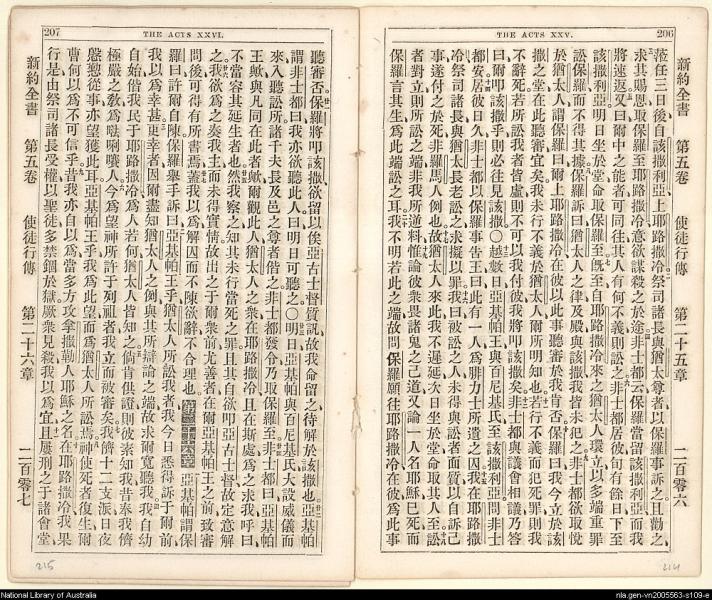 206
THE ACTS XXV.
新約全書 第五卷 使徒行傳 第二十五章 二百零六
蒞任三日後自該撒利亞上耶路撒冷祭司諸長與猶太尊者以保羅事訴之且勸之
求其賜恩取保羅至耶路撒冷意欲謀殺之於途非士都云保羅當留該撒利亞而我
將速返又曰爾中之能者可同往其人有何不義則訟之非士都居彼旬有餘日下至
該撒利亞明日坐於堂命取保羅至旣至自耶路撒冷來之猶太人環立以多端重罪
訟保羅而不得其據保羅訴曰猶太人之律及殿與該撒我皆未犯之非士都欲取悅
於猶太人謂保羅曰爾上耶路撒冷在彼以此事聽審於我肯否保羅曰我今立於該
撒之堂在此聽審宜矣我未行不義於猶太人爾所明知也若行不義而犯死罪則我
不辭死若所訟我者皆虛則不可以我付彼我將叩該撒矣非士都與議會相議乃答
曰爾叩該撒乎則必往見該撒〇越數日亞基帕王與百尼基氏至該撒利亞問非士
都安居彼日久非士都以保羅事告王曰此有一人爲腓力士所遣之囚我在耶路撒
冷祭司諸長與猶太長老訟之求擬以罪我曰被訟之人未得與訟者面質以自訴己
事遂付之於死非羅馬人例也故猶太人來此我不遲延次日坐於堂命取其人至訟
者對立則所訟之端非我所逆料惟論彼衆畏諸鬼之己道又論一人名耶穌已死而
保羅言其生爲此端訟之耳我不明若此之端故問保羅願往耶路撒冷在彼爲此事
214
207
THE ACTS XXVI.
聽審否保羅將叩該撒欲留以俟亞古士督質訊故我命留之待解於該撒也亞基帕
謂非士都曰我亦欲聽此人曰明日可聽之〇明日亞基帕與百尼基氏大設威儀而
來入聽訟所諸千夫長及邑之尊者偕之非士都發令乃取保羅至非士都曰亞基帕
王歟與凡同在此者歟爾觀此人猶太人之衆在耶路撒冷且在斯處爲之求我呼曰
不當容其延生者也然我察之知其未行當死之罪且其自欲叩亞古士督故定意解
之我欲爲之奏我主而未得實情故出之于爾衆前尤善者在爾亞基帕王之前致審
問後可得有所書焉蓋我以爲解囚而不陳其辭不合理也 第二十六章 亞基帕謂保
羅曰許爾自陳保羅舉手訴曰亞基帕王乎猶太人所訟我者我今日悉得訴于爾前
我以爲幸甚更幸者因爾盡知猶太人之例與其所辯論之端故求爾寬聽我我自幼
自始偕我民于耶路撒冷爲人若何猶太人皆知之倘肯供證則彼素知我昔奉我儕
極嚴之教爲𠵽唎㘔人今爲望神所許于列祖者我立而被審矣我儕十二支派日夜
慇懃從事亦望獲此耳亞基帕王乎我爲此望而爲猶太人所訟焉神使死者復生爾
曹何以爲不可信乎昔我亦自以爲當多方攻拿撒勒人耶穌之名在耶路撒冷我果
行是由祭司諸長受權以聖徒多禁錮於獄厥衆見殺我以爲宜且屢刑之于諸會堂
新約全書 第五卷 使徒行傳 第二十六章 二百零七
215
National Library of Australia
nla.gen-vn2005563-s109-e